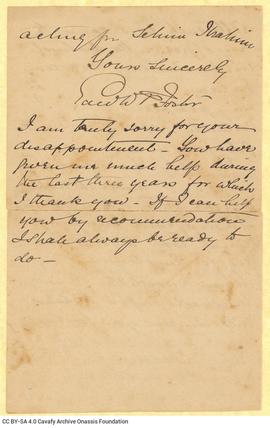 acting for Selim Ibrahim
Yours sincerely
Foster
I am truly sorry for your
disappointment - You have
given me much help during
the last three years for which
I thank you - If I can help
you by recommendation
I shall always be ready to
do -
CC BY-SA 4.0 Cavafy Archive Onassis Foundation